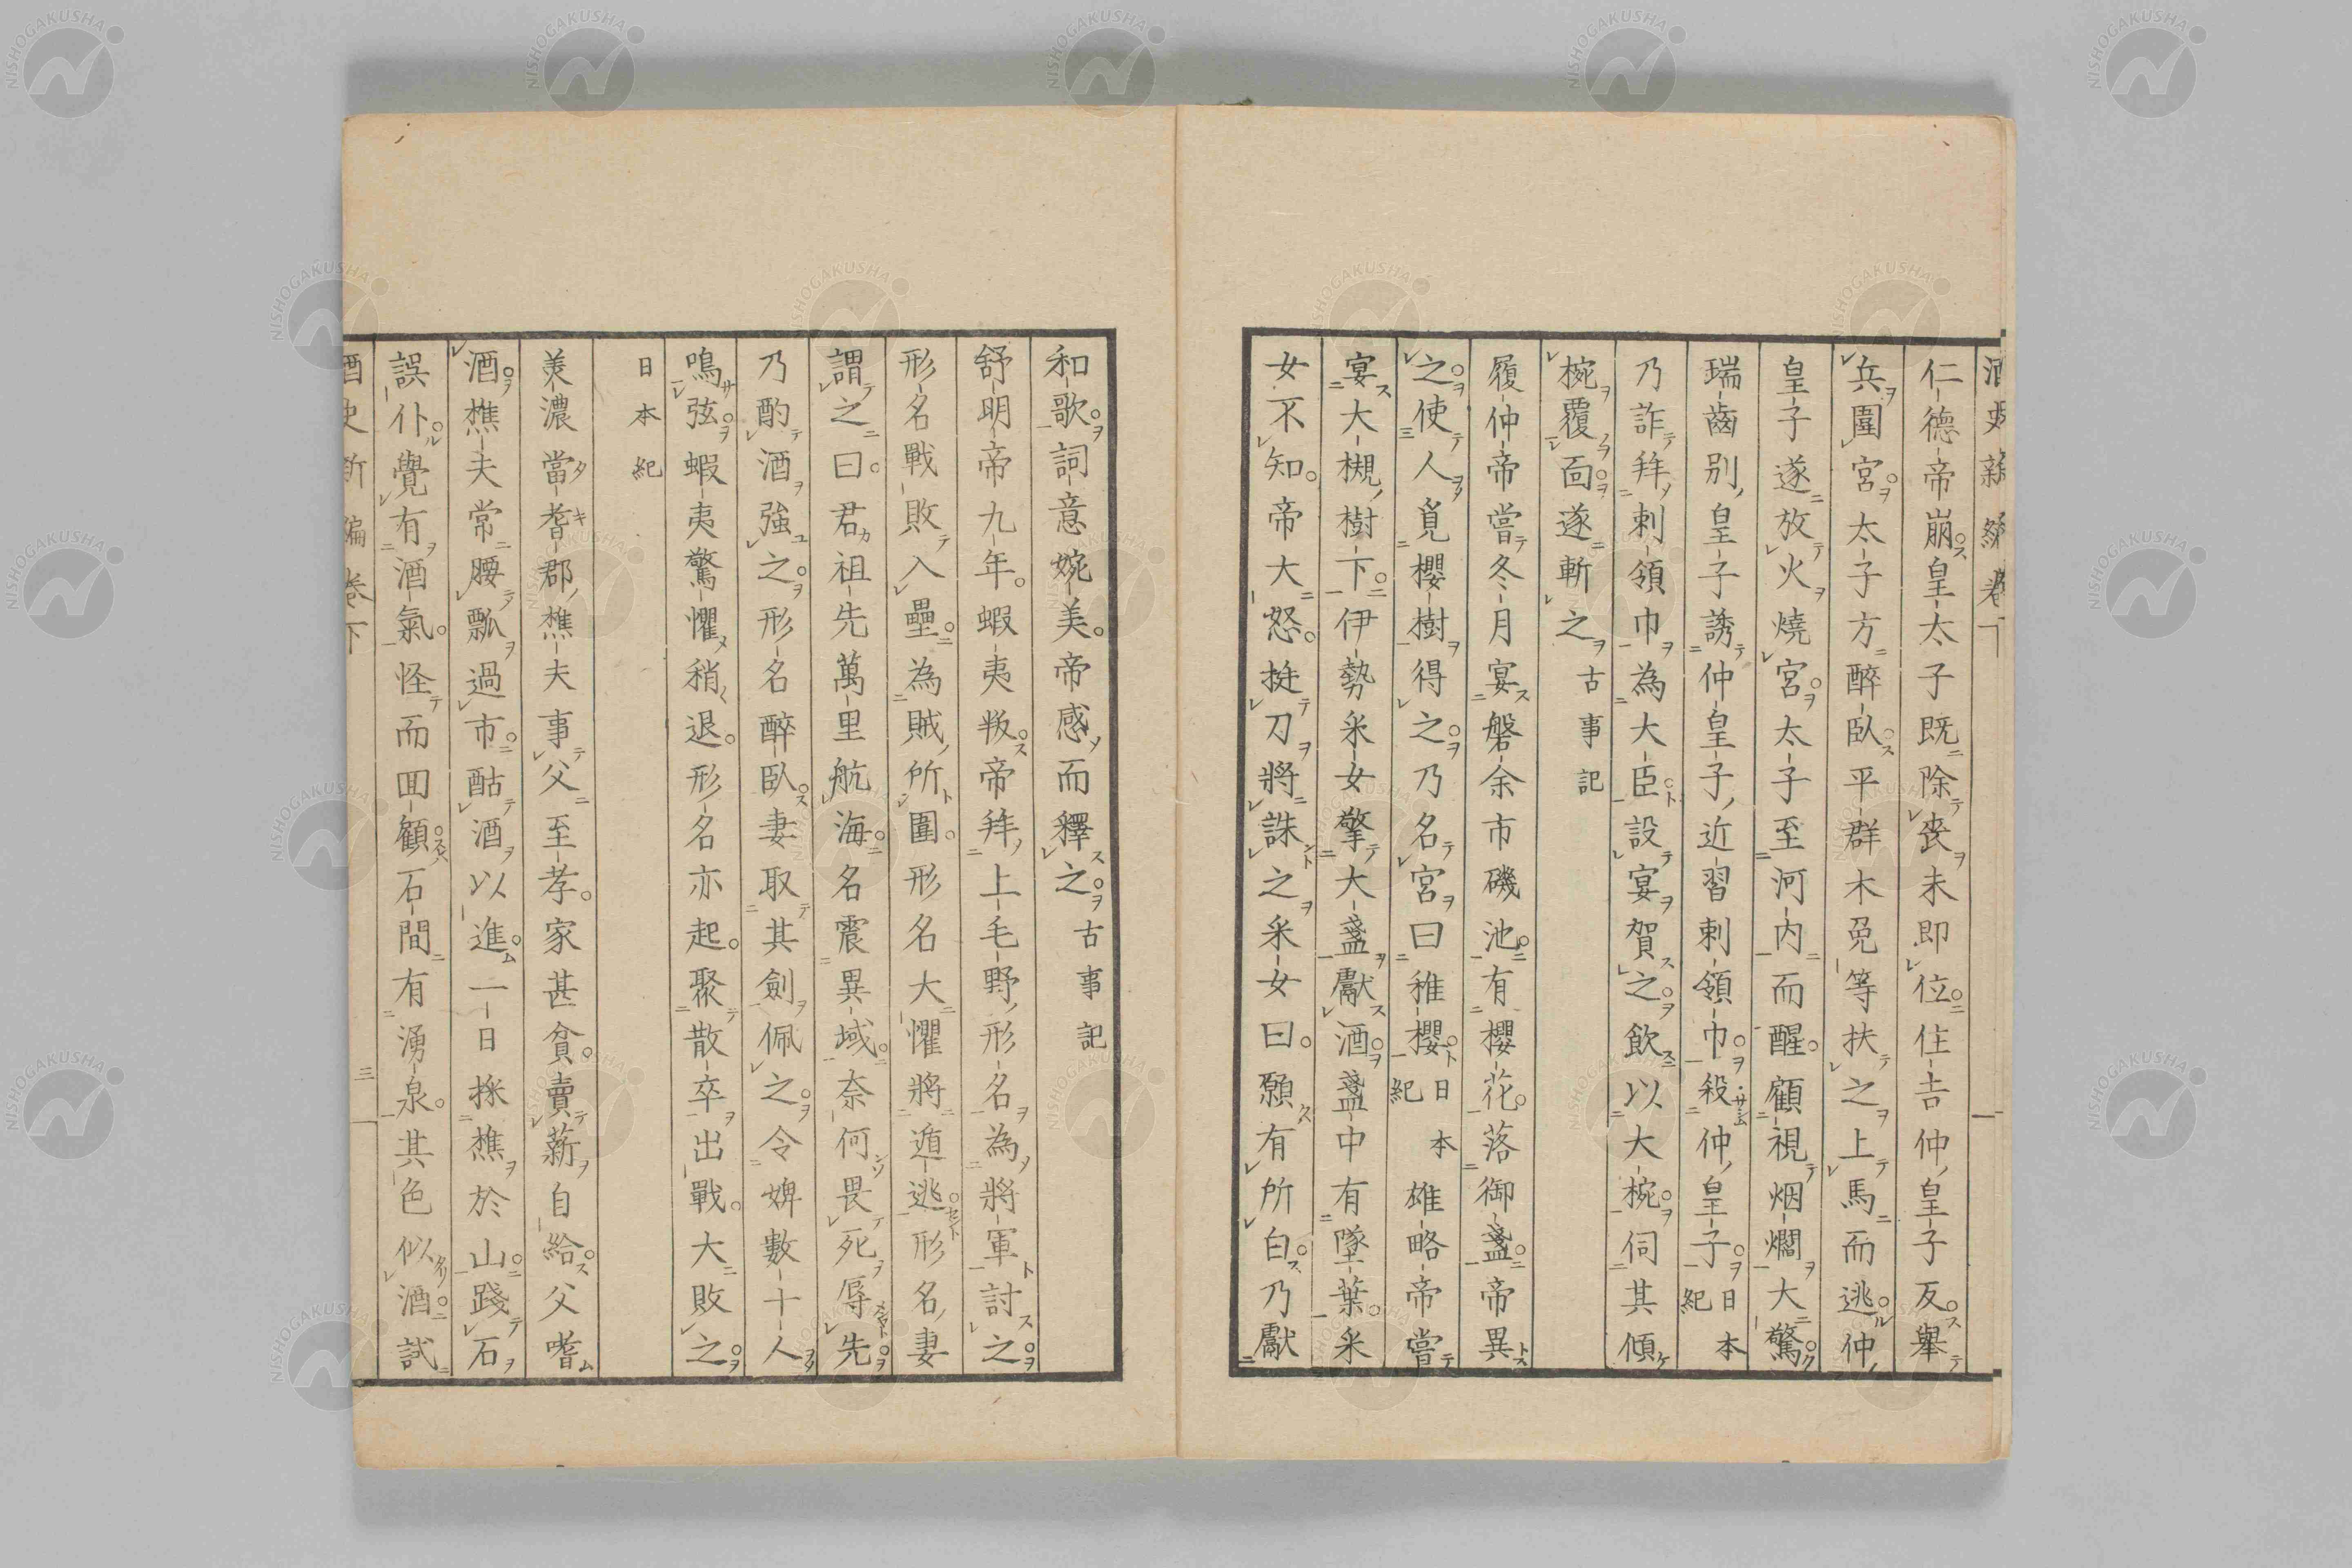 酒史新編卷下
仁德帝崩皇太子既除喪未即位住吉仲皇子反舉
兵圍宮太子方醉臥平群木免等扶之上馬而逃仲
皇子遂放火燒宮太子至河內而醒顧視烟爓大驚
瑞齒別皇子誘仲皇子近習刺領巾殺仲皇子日本紀
乃詐拜刺領巾為大臣設宴賀之飲以大椀伺其傾
椀覆面遂斬之古事記
履仲帝嘗冬月宴磐余市磯池有櫻花落御盞帝異
之使人覓櫻樹得之乃名宮曰稚櫻日本紀雄略帝嘗
宴大槻樹下伊勢采女擎大盞獻酒盞中有墜葉采
女不知帝大怒挺刀將誅之采女曰願有所白乃獻
和歌詞意婉美帝感而釋之古事記
舒明帝九年蝦夷叛帝拜上毛野形名為將軍討之
形名戰敗入壘為賊所圍形名大懼將遁逃形名妻
謂之曰君祖先萬里航海名震異域奈何畏死辱先
乃酌酒強之形名醉臥妻取其劍佩之令婢數十人
鳴弦蝦夷驚懼稍退形名亦起聚散卒出戰大敗之
日本紀
美濃當耆郡樵夫事父至孝家甚貧賣薪自給父嗜
酒樵夫常腰瓢過市酤酒以進一日採樵於山踐石
誤仆覺有酒氣怪而回顧石間有湧泉其色似酒試
酒史新編卷下
三